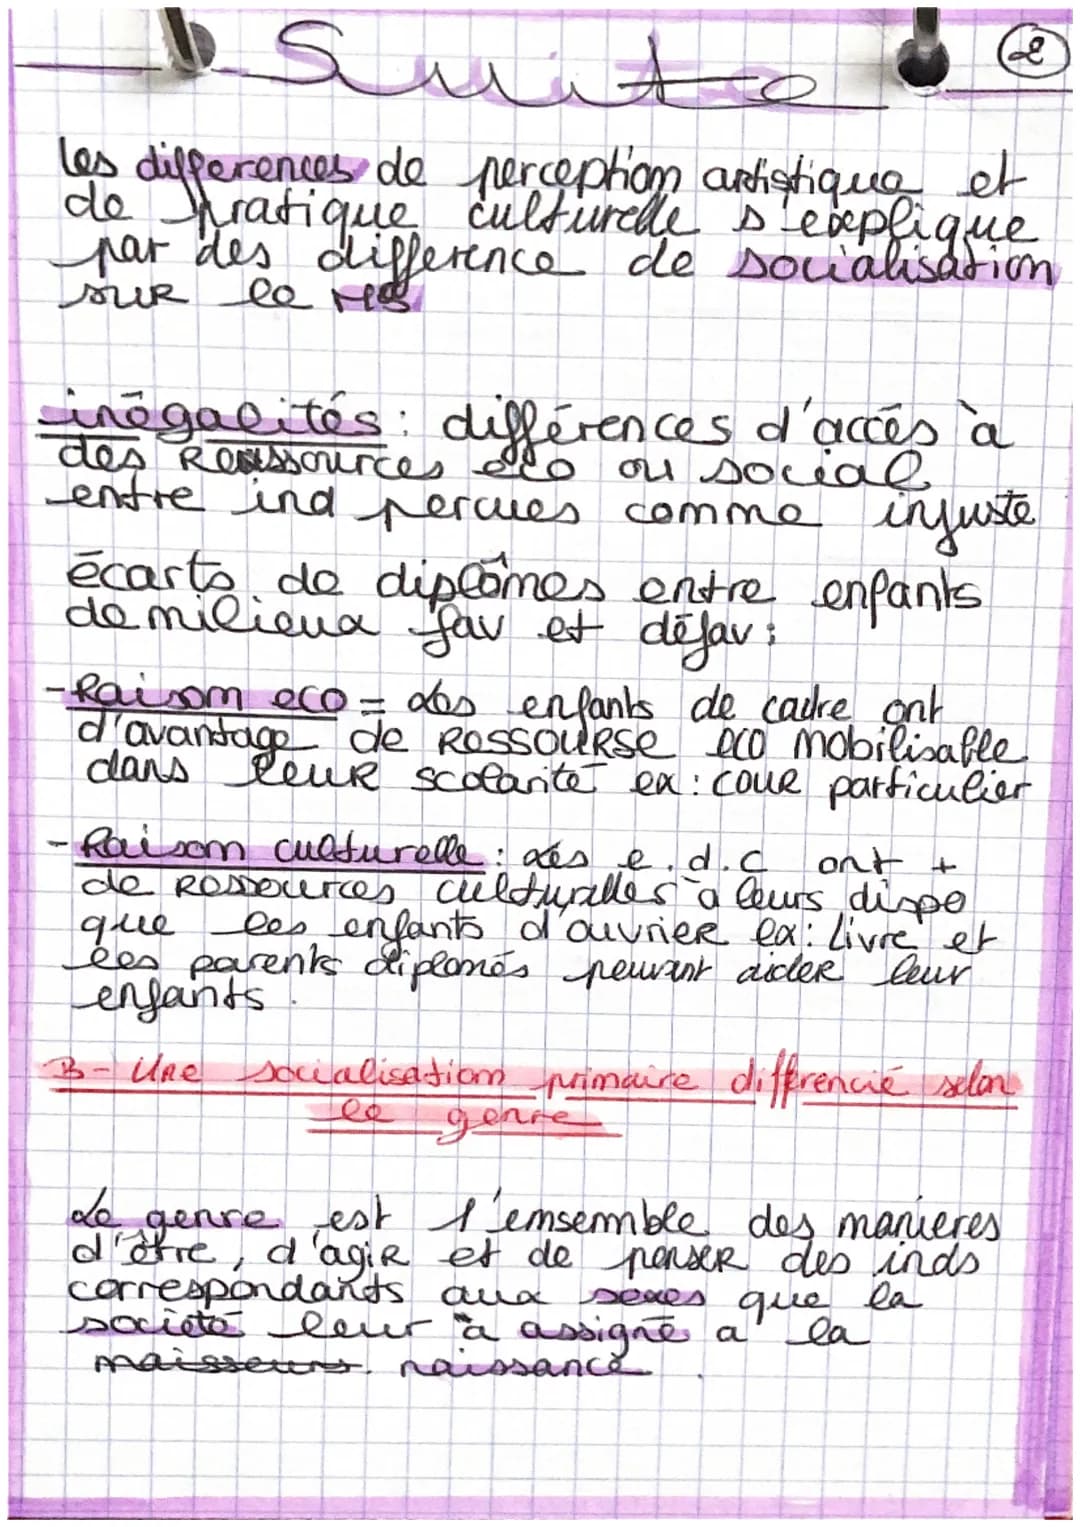 Suite
2
les differences de perception artistique et
de pratique culturelle s'explique
par des différence de socialisation
sur le
inégalités : différences d'accés à
des Ressources eco ou social
entre ind percues comme injuste
écarts de diplômes entre enfants
de milieux fav et défav :
- Raison eco = les enfants de cadre ont
d'avantage de RessouRse eco mobilisable
dans leur scolarité ex : cour particulier
- Raison culturelle : les e.d.c ont +
de Ressources culturelles à leurs dispo
que les enfants d'ouvrier ex : Livre et
les parents diplomés peuvent aider leur
enfants.
B - Une socialisation primaire differencié selon
le genre
Le genre est l'emsemble des manieres
d'être, d'agir et de penser des inds
correspondants aux sexes que la
société leur à assigné a la
naissance.